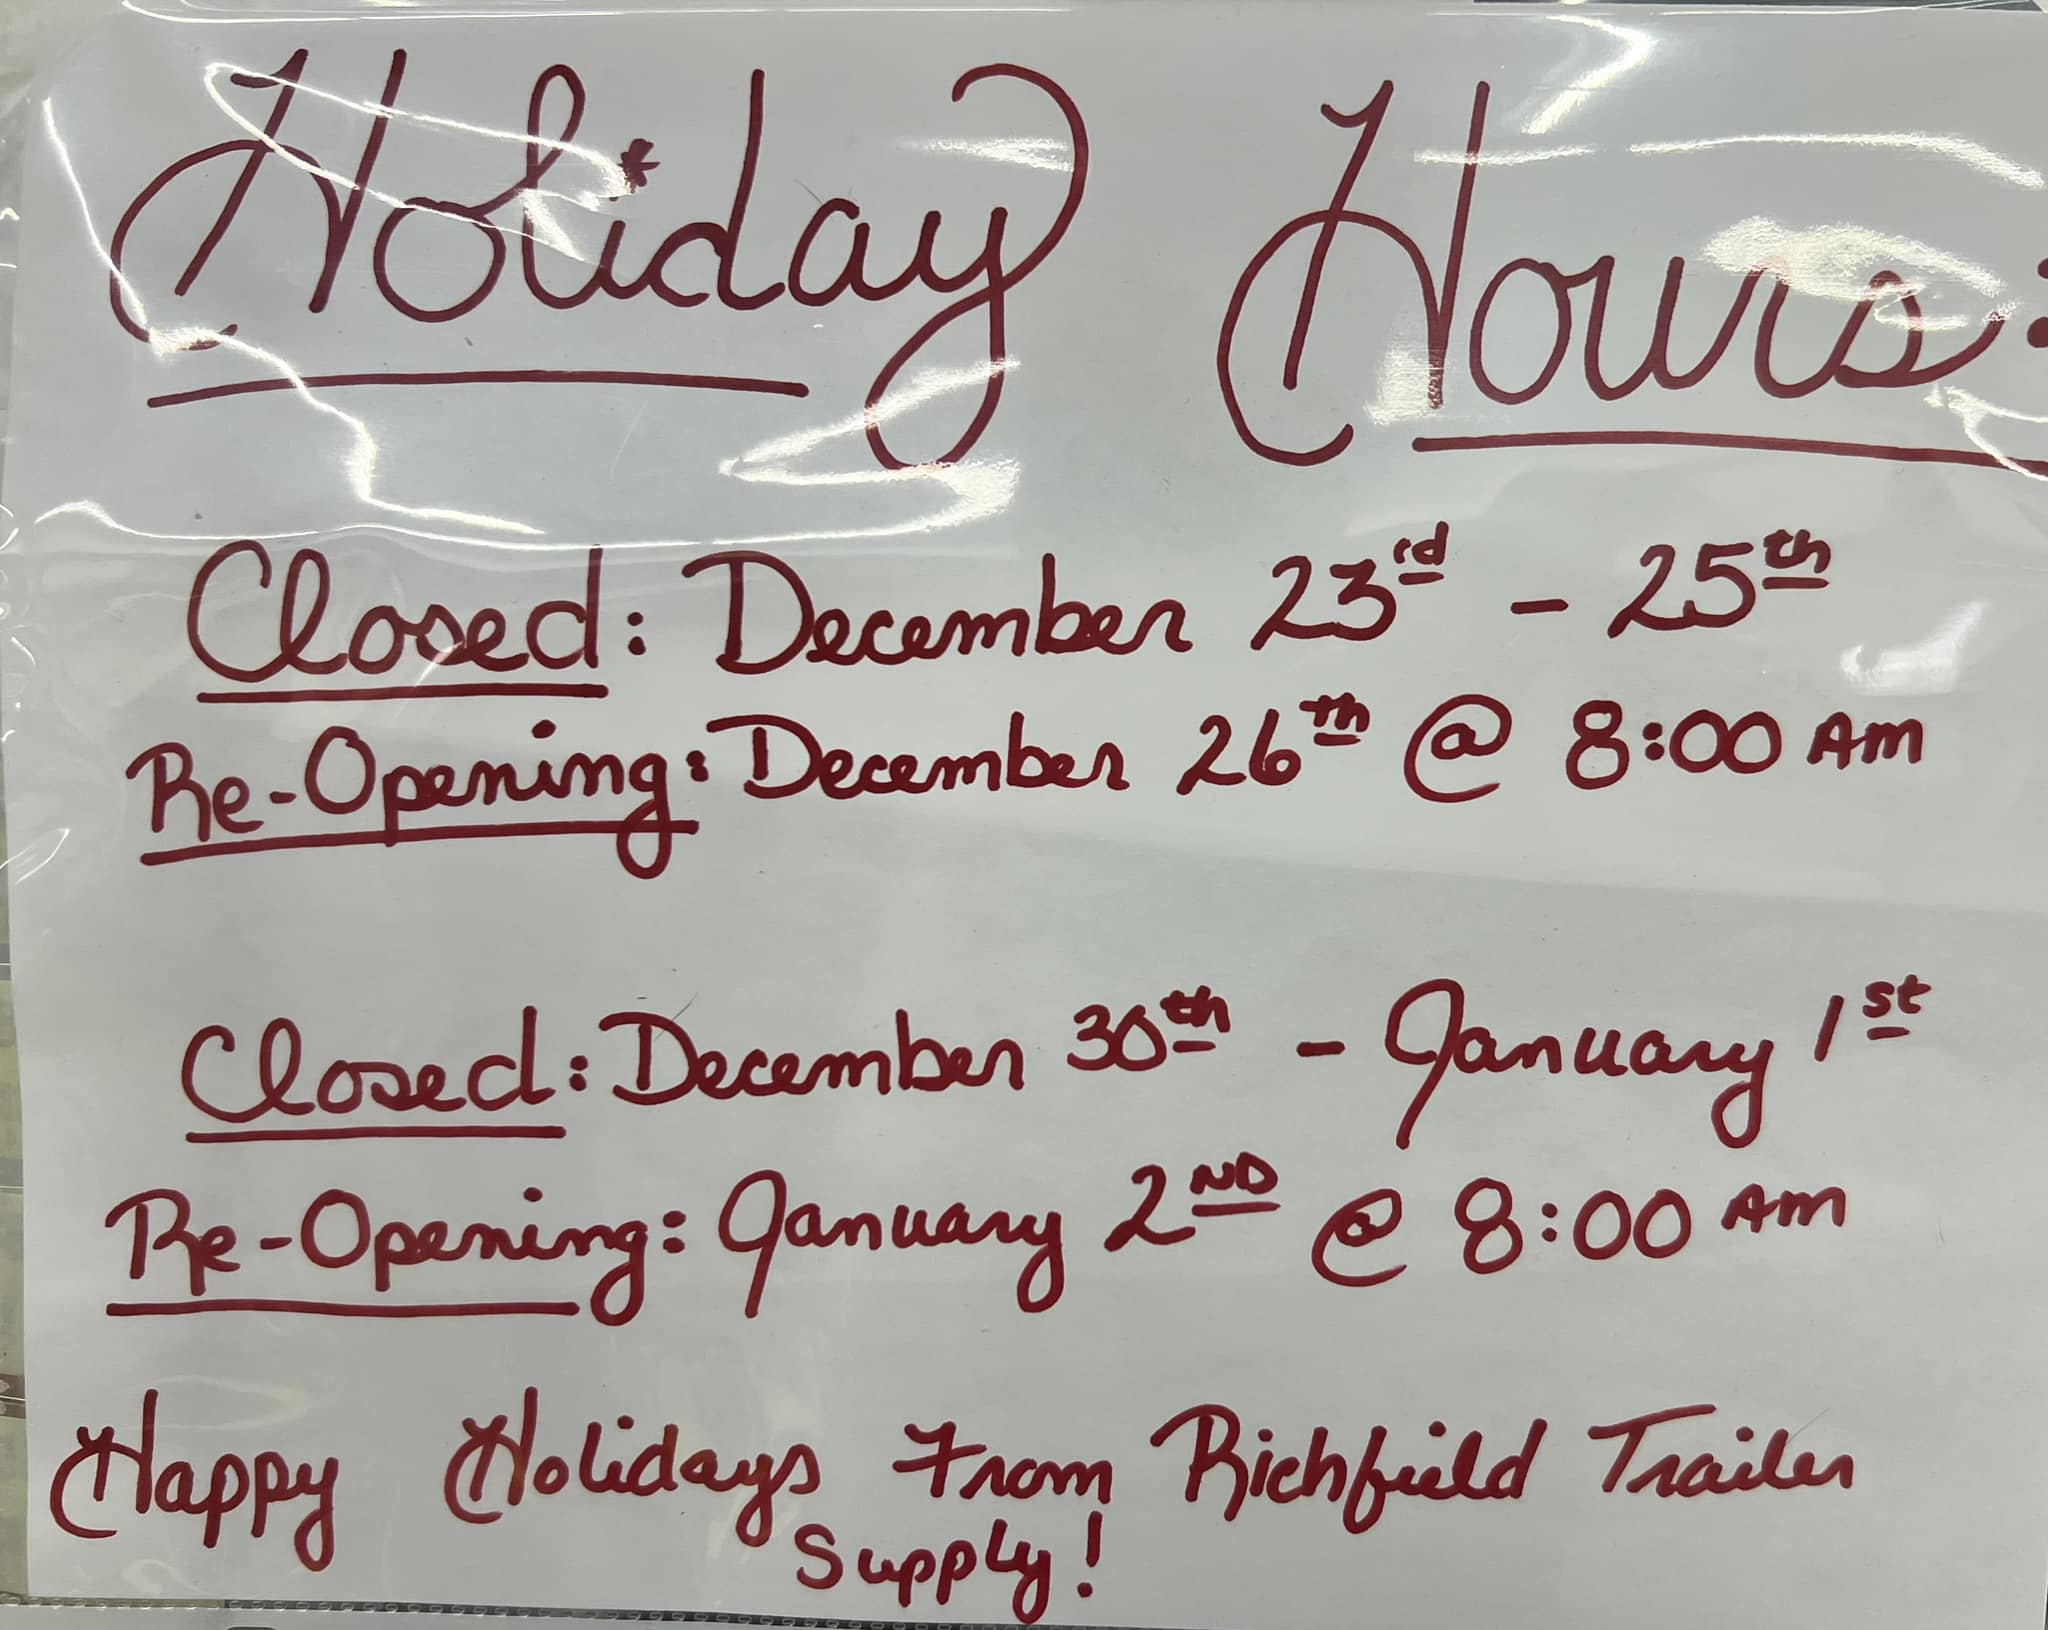 Holiday Hours:
Closed: December 23rd - 25th
Re-Opening: December 26th @ 8:00 AM
Closed: December 30th - January 1st
Re-Opening: January 2ND @ 8:00 AM
Happy Holidays From Richfield Trailer
Supply!